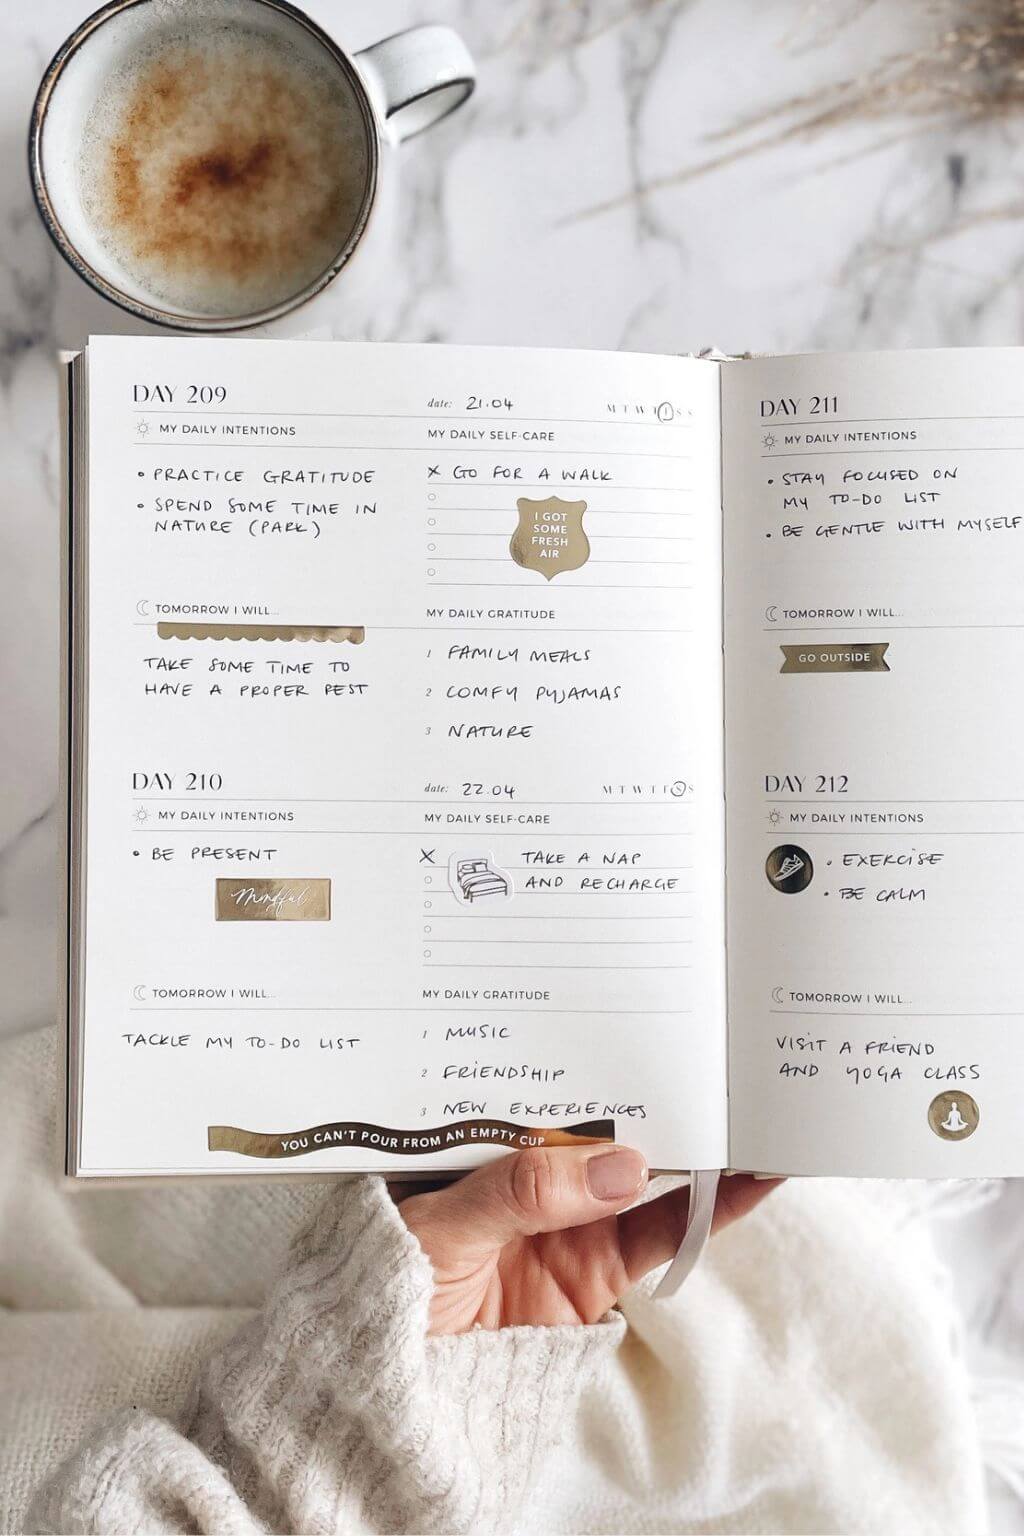 DAY 209
date: 21.04 M T W T F S S
MY DAILY INTENTIONS
• PRACTICE GRATITUDE
• SPEND SOME TIME IN
NATURE (PARK)
MY DAILY SELF-CARE
X GO FOR A WALK
I GOT
SOME
FRESH
AIR
TOMORROW I WILL...
TAKE SOME TIME TO
HAVE A PROPER REST
MY DAILY GRATITUDE
1 FAMILY MEALS
2 COMFY PYJAMAS
3 NATURE
DAY 210
date: 22.04 M T W T F S S
MY DAILY INTENTIONS
• BE PRESENT
Mindful
MY DAILY SELF-CARE
X TAKE A NAP
AND RECHARGE
TOMORROW I WILL...
TACKLE MY TO-DO LIST
MY DAILY GRATITUDE
1 MUSIC
2 FRIENDSHIP
3 NEW EXPERIENCES
YOU CAN'T POUR FROM AN EMPTY CUP
DAY 211
MY DAILY INTENTIONS
• STAY FOCUSED ON
MY TO-DO LIST
• BE GENTLE WITH MYSELF
TOMORROW I WILL...
GO OUTSIDE
DAY 212
MY DAILY INTENTIONS
• EXERCISE
• BE CALM
TOMORROW I WILL...
VISIT A FRIEND
AND YOGA CLASS